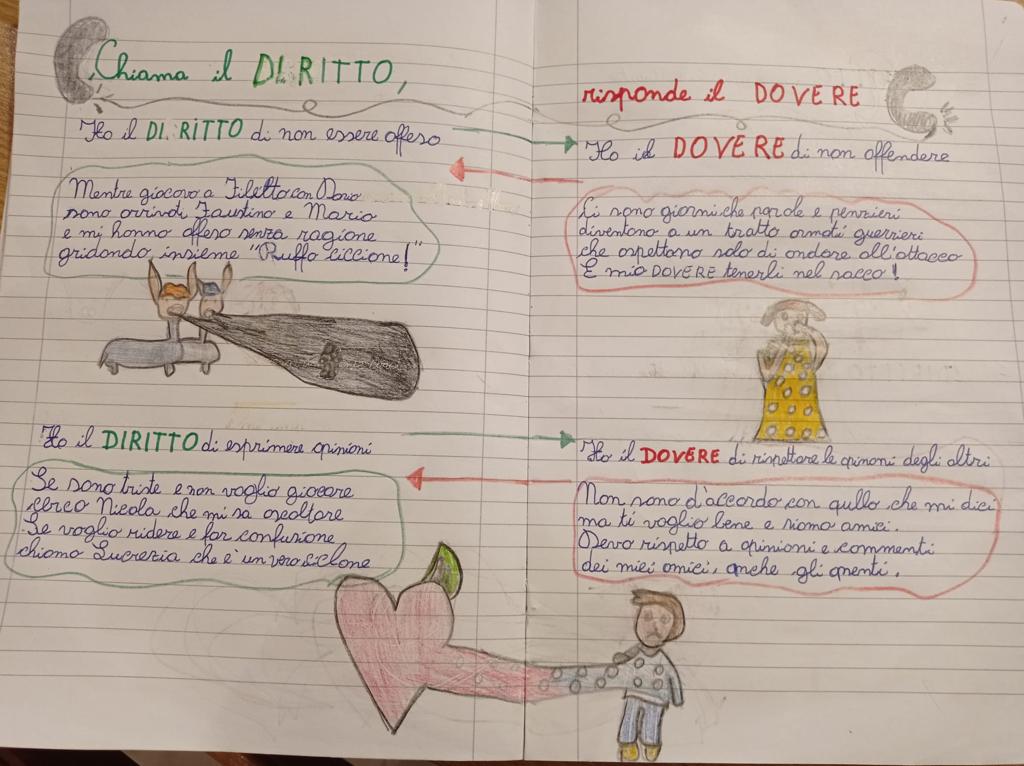 Chiama il DIRITTO,
risponde il DOVERE
Ho il DIRITTO di non essere offeso
Ho il DOVERE di non offendere
Mentre giocavo a Filetto con Dario
sono arrivati Faustino e Mario
e mi hanno offeso senza ragione
gridando insieme "Ruffo ciccione!"
Ci sono giorni che parole e pensieri
diventano a un tratto armati guerrieri
che aspettano solo di andare all'attacco
È mio DOVERE tenerli nel sacco!
Ho il DIRITTO di esprimere opinioni
Ho il DOVERE di rispettare le opinoni degli altri
Se sono triste e non voglio giocare
cerco Nicola che mi sa ascoltare
Se voglio ridere e far confusione
chiamo Lucrezia che è un vero ciclone
Non sono d'accordo con qullo che mi dici
ma ti voglio bene e siamo amici.
Devo rispetto a opinioni e commenti
dei miei amici, anche gli